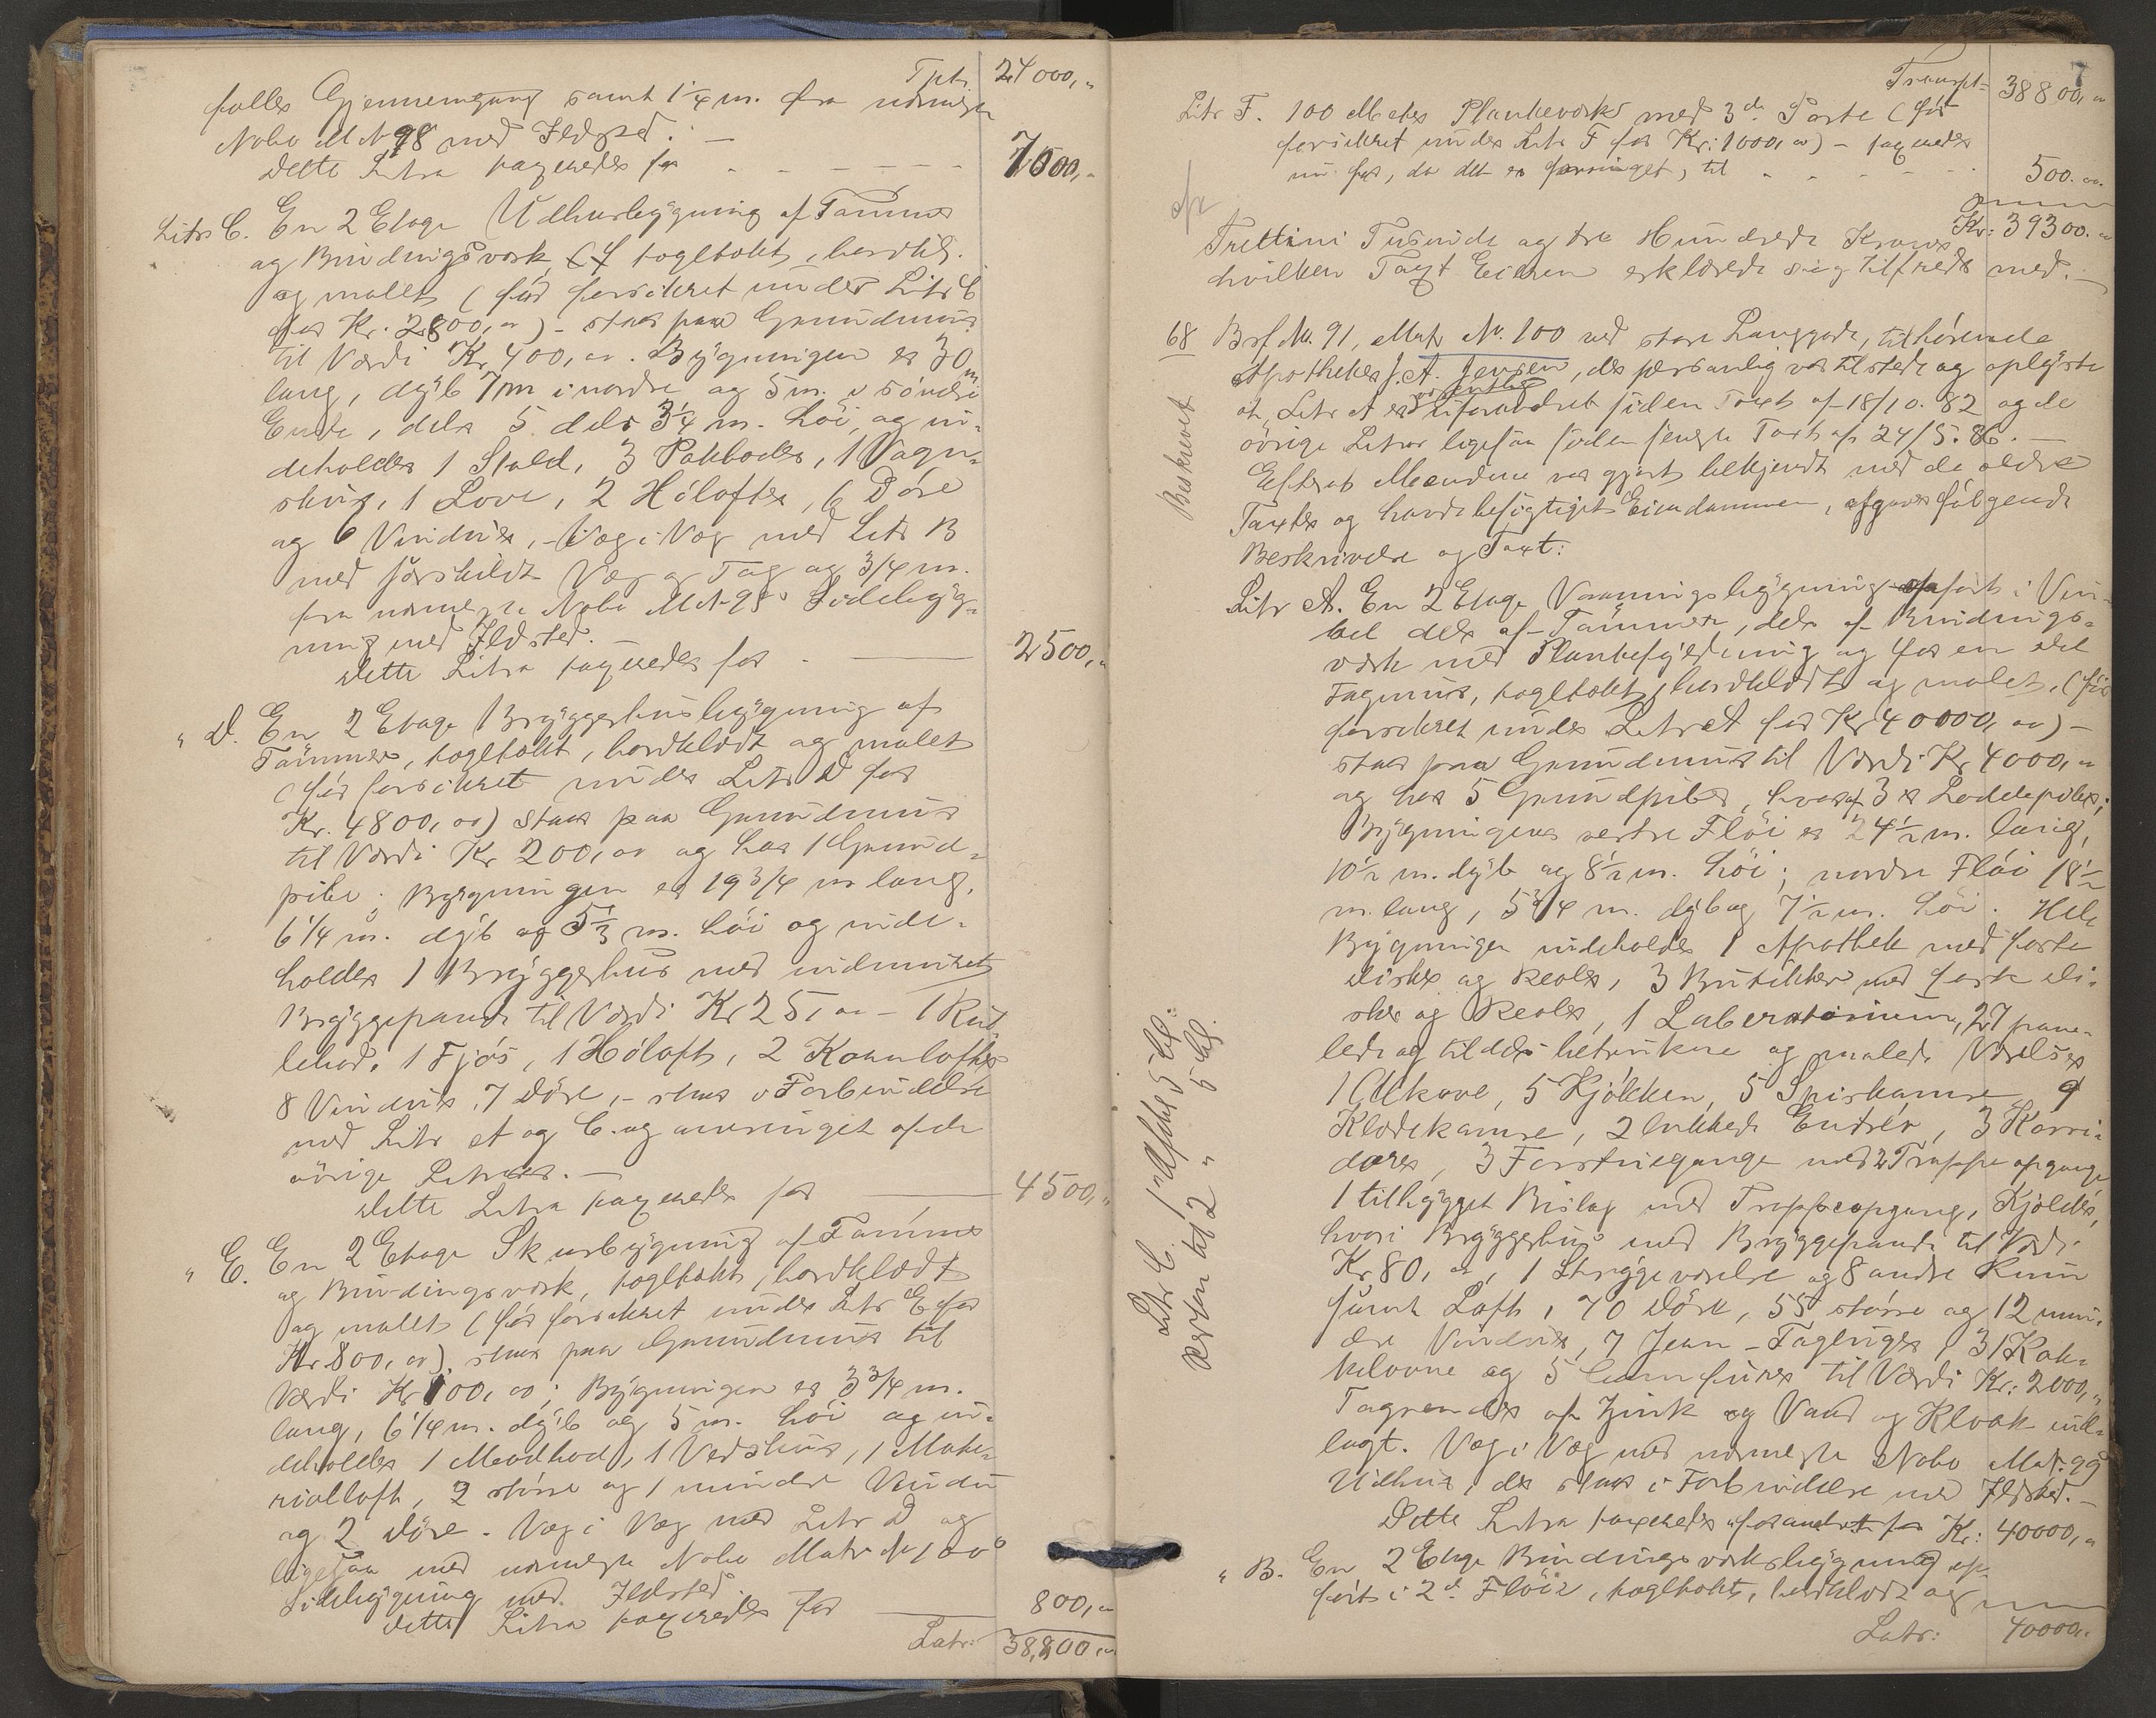 Tpt. 24000,"
fælles Gjennemgang samt 1 1/4 m. fra nærmeste
Nabo M.N. 98 med Ildsted. —
Dette Litra taxeredes for - - - - - 7000,"
Litr C. En 2 Etage Udhusbygning af Tømmer
og Bindingsværk, tægltækt, bordkl.
og malet (før forsikret under Litr C
for Kr. 2800,00) - staar paa Grundmur
til Værdi Kr. 400,00. Bygningen er 30 m
lang, dyb 7 m i nordre og 5 m. i søndre
Ende, dels 5 dels 3 1/4 m. høi, og in-
deholder 1 Stald, 3 Pakboder, 1 Vogn-
skur, 1 Love, 2 Hølofter, 6 Døre
og 6 Vinduer, - Væg i Væg med Litr B
med særskildt Væg og Tag og 3/4 m.
fra nærmeste Nabo M.N. 95s Sidebyg-
ning med Ildsted. —
Dette Litra taxeredes for - — 2500,"
" D. En 2 Etage Bryggerhusbygning af
Tømmer, tægltækt, bordklædt og malet
(før forsikret under Litr D for
Kr. 4800,00) staar paa Grundmur
til Værdi Kr 200,00 og har 1 Grund-
pibe; Bygningen er 19 3/4 m lang,
6 1/4 m. dyb og 5 1/3 m. høi og inde-
holder 1 Bryggerhus med indmuret
Bryggepande til Værdi Kr 25,00 - 1 Rul-
lebod, 1 Fjøs, 1 Høloft, 2 Kornlofter
8 Vinduer, 7 Døre, - staar i Forbindelse
med Litr A og C. og omringet af de
øvrige Litraer. —
Dette Litra taxeredes for — 4500,"
" E. En 2 Etage Skurbygning af Tømmer
og Bindingsværk, tægltækt, bordklædt
og malet (før forsikret under Litr E for
Kr 800,00), staar paa Grundmur til
Værdi Kr 100,00; Bygningen er 3 3/4 m.
lang, 6 1/4 m. dyb og 5 m. høi og in-
deholder 1 Madbod, 1 Vedskur, 1 Mate-
rialloft, 2 større og 1 mindre Vindu
og 2 Døre. Væg i Væg med Litr D og
ligesaa med nærmeste Nabo Matr No 100s
Sidebygning med Ildsted.
Dette Litra taxeredes for — 800,"
Latr: 38,800,"
7
Transpt. 38800,"
Litr F. 100 Meter Plankeværk med 3 de Porte (før
forsikret under Litr F for Kr: 1000,00) - taxeredes
nu for, da det er forringet, til - - - - 500.00
Kr: 39300."
Trettini Tusinde og tre Hundrede Kroner
hvilken Taxt Eieren erklærede sig tilfreds med. —
68 Brf. No. 91, Matr No. 100 ved store Langgade, tilhørende
Apotheker J. A. Jensen, der personlig var tilstede og oplyste
at Litr A er væsentlig uforandret siden Taxt af 18/10. 82 og de
øvrige Litraer ligesaa siden seneste Taxt af 24/5. 86. —
Efterat Mændene var gjort bekjendt med de ældre
Taxter og havde besigtiget Eiendommen, afgaves følgende
Beskrivelse og Taxt:
Beskrevet
Litr A. En 2 Etage Vaaningsbygning opført i Vin-
kel dels af Tømmer, dels af Bindings-
værk med Plankefyldning og for en Del
Fagmur, tægltækt, bordklædt og malet, (før
forsikret under Litr A for Kr 40000,00) -
staar paa Grundmur til Værdi Kr 4000,"
og har 5 Grundpiber, hvoraf 3 er Loddepiber;
Bygningens vestre Fløi er 24 1/2 m. lang,
10 1/2 m. dyb og 8 1/2 m. høi; nordre Fløi 18 1/2
m. lang, 5 3/4 m. dyb og 7 1/2 m. høi. Hele
Bygningen indeholder 1 Apothek med faste
Diske og Reoler, 3 Butikker med faste Di-
ske og Reoler, 1 Laboratorium, 27 pane-
lede og tildels betrukne og malede Værelser
1 Alkove, 5 Kjøkken, 5 Spiskamre, 9
Klædekamre, 2 lukkede Entréer, 3 Korri-
dorer, 3 Forstuegange med 2 Trappeopgange
1 tilbygget Bislag med Trappeopgang, Kjælder,
hvori Bryggerhus med Bryggepande til Værdi
Kr 80,00, 1 Strygeværelse og 8 andre Rum
samt Loft, 70 Døre, 55 større og 12 min-
dre Vinduer, 7 Jern-Tagluger, 31 Kak-
kelovne og 5 Komfurer til Værdi Kr: 2000,"
Tagrender af Zink og Vand og Kloak ind-
lagt. Væg i Væg med nærmeste Nabo Mat. 99
Udhus, der staar i Forbindelse med Ildsted. —
Dette Litra taxeredes uforandret for Kr: 40000,"
" B. En 2 Etage Bindingsværksbygning op-
ført i 2 de Fløie, tægltækt, bordklædt og
Latr: 40000."